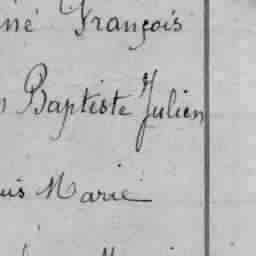 né François
Baptiste Julien
Marie